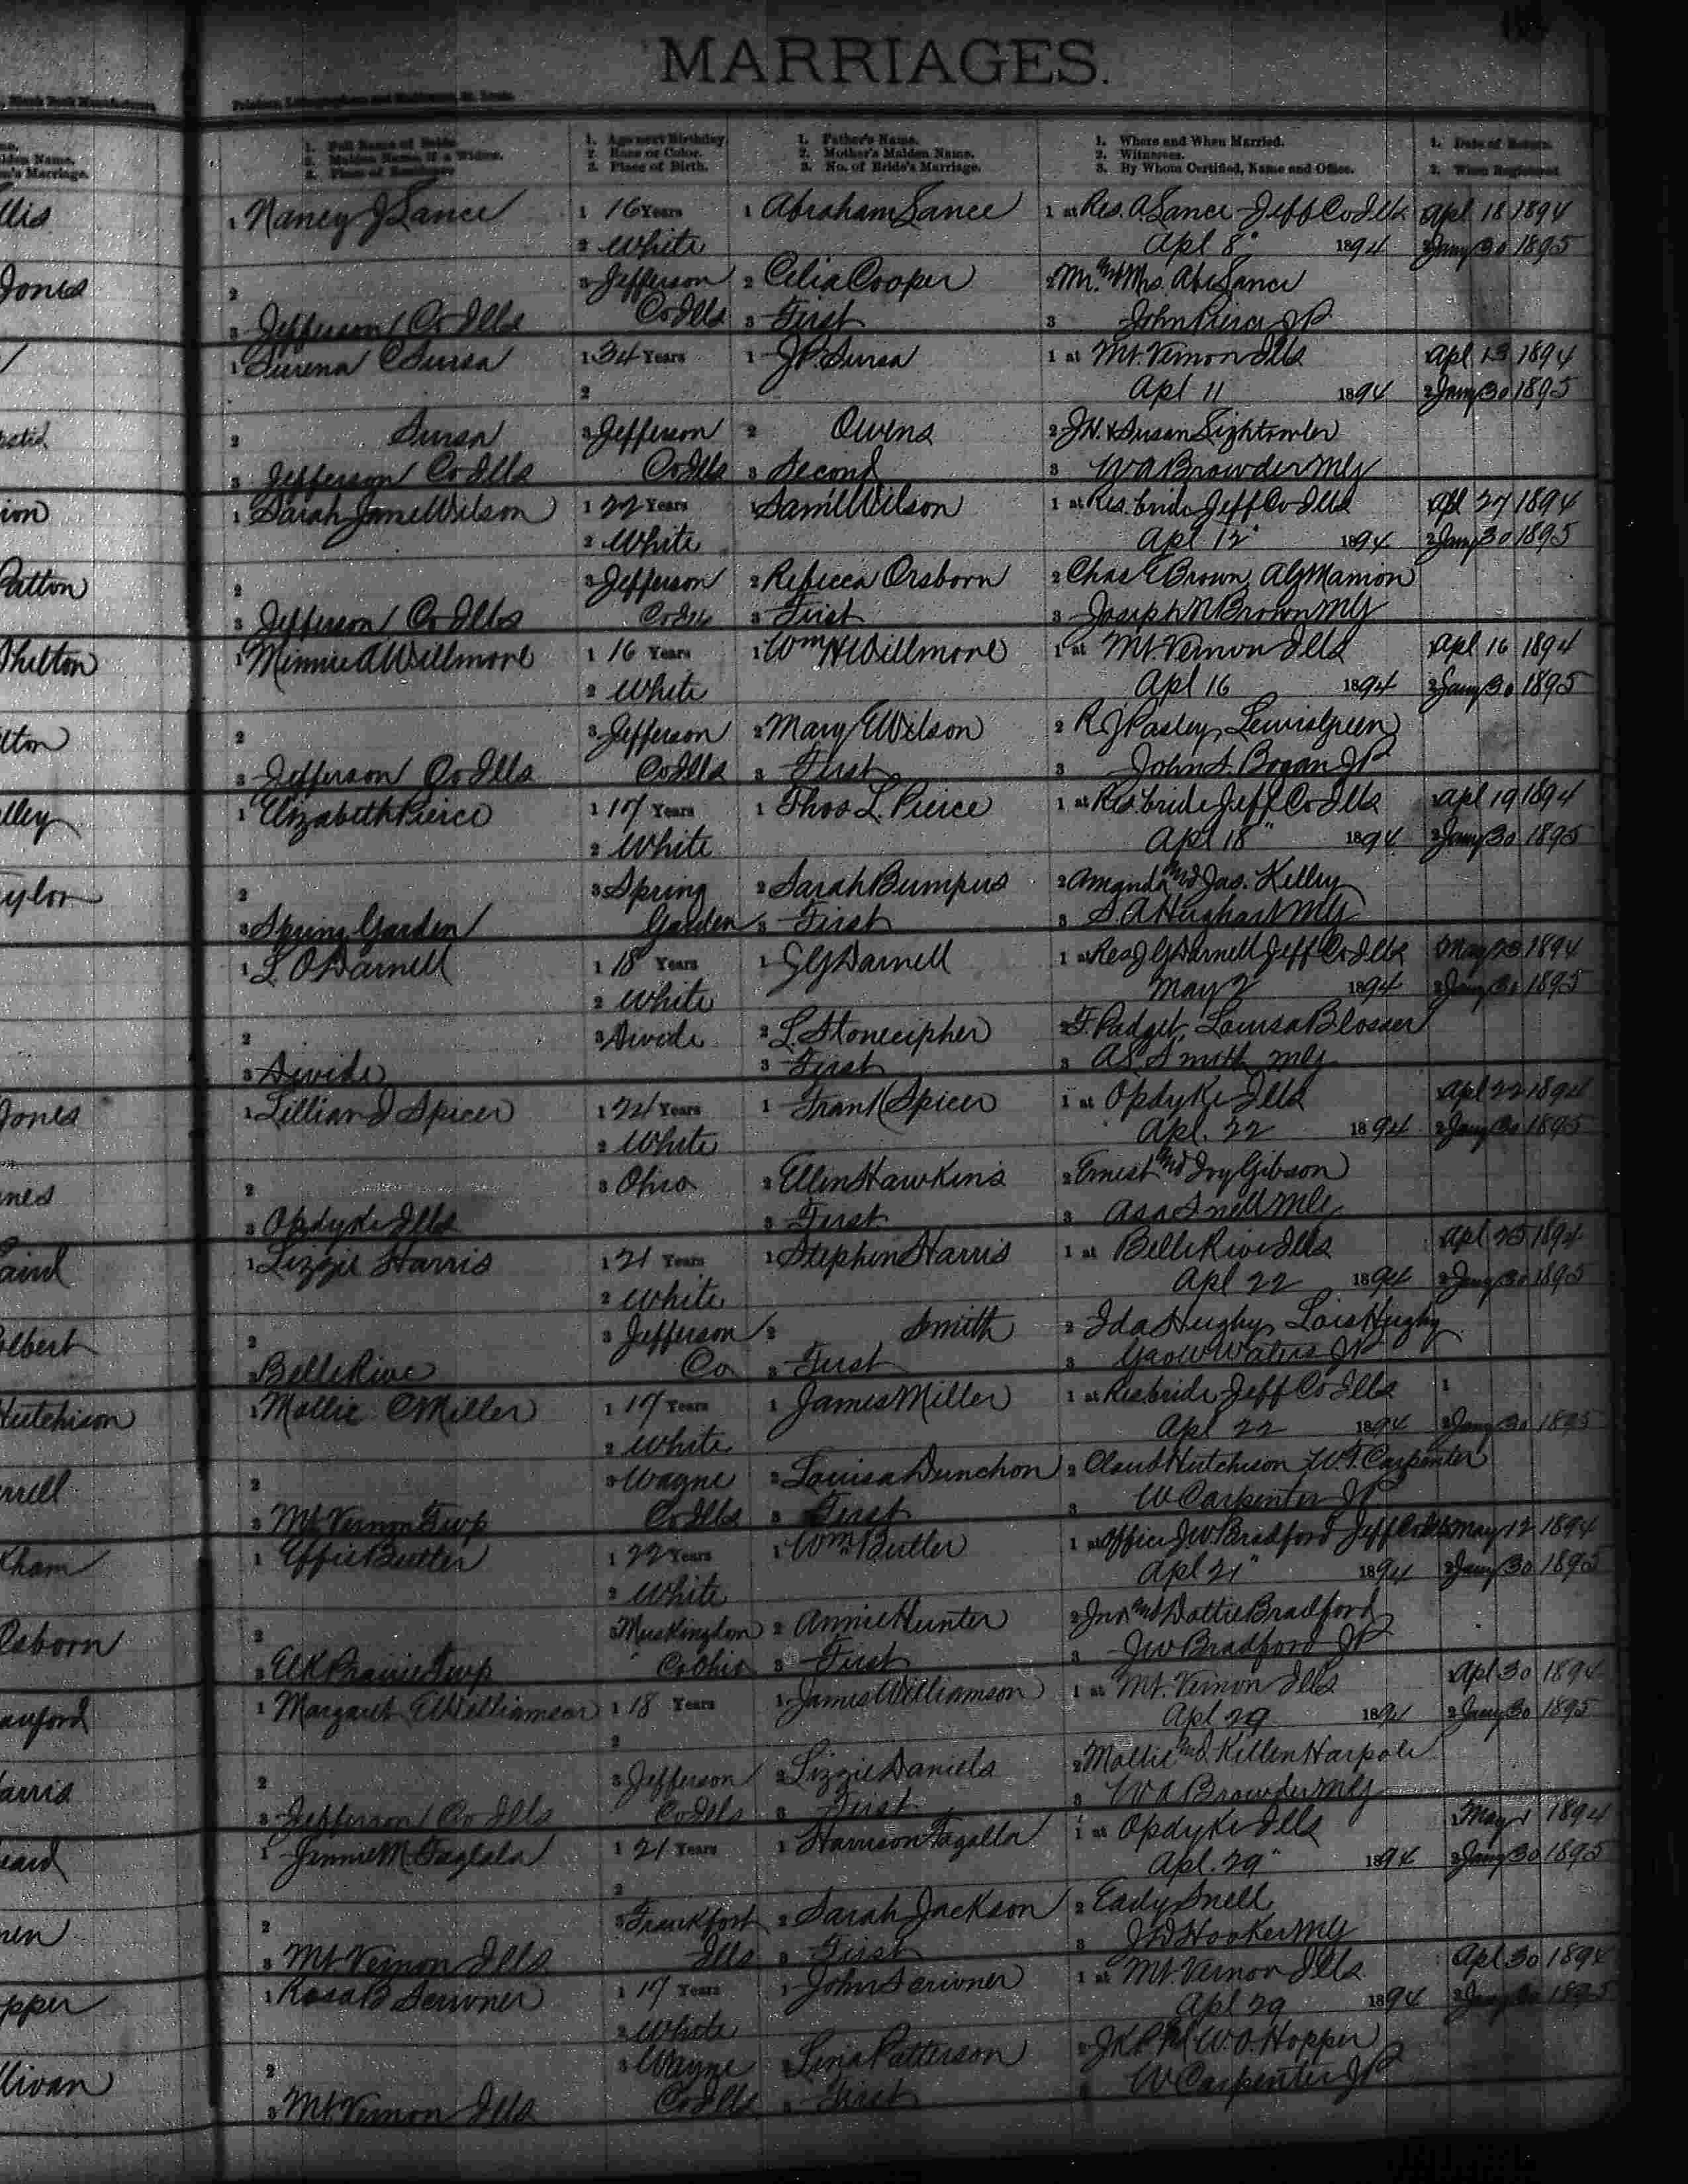 MARRIAGES.
1. Full Name of Bride. 1. Age next Birthday. 1. Father's Name. 1. Where and When Married. 1. Date of Return.
2. Maiden Name, if a Widow. 2. Race or Color. 2. Mother's Maiden Name. 2. Witnesses. 2. When Registered
3. Place of Residence 3. Place of Birth. 3. No. of Bride's Marriage. 3. By Whom Certified, Name and Office.
1 Nancy J Lance 1 16 Years 1 Abraham Lance 1 at Res. A Lance Jeff Co Ills Apl 18 1894
2 White Apl 8" 1894 2 Jany 30 1895
2 3 Jefferson 2 Celia Cooper 2 Mr. and Mrs. Abe Lance
3 Jefferson Co Ills Co Ills 3 First 3 John Pierce JP
1 Surena C Sursa 1 34 Years 1 J.P. Sursa 1 at Mt. Vernon Ills Apl 13 1894
2 Apl 11 1894 2 Jany 30 1895
2 Sursa 3 Jefferson 2 Owens 2 J.N. & Susan Lightowler
3 Jefferson Co Ills Co Ills 3 Second 3 W A Browder MG
1 Sarah Jane Wilson 1 22 Years 1 Saml Wilson 1 at Res. bride Jeff Co Ills Apl 27 1894
2 White Apl 12" 1894 2 Jany 30 1895
2 3 Jefferson 2 Rebecca Orsborn 2 Chas E Brown, A G Manion
3 Jefferson Co Ills Co Ills 3 First 3 Joseph N Brown MG
1 Minnie A Willmore 1 16 Years 1 Wm H Willmore 1 at Mt. Vernon Ills Apl 16 1894
2 White Apl 16 1894 2 Jany 30 1895
2 3 Jefferson 2 Mary E Wilson 2 R J Pasley, Lewis Green
3 Jefferson Co Ills Co Ills 3 First 3 John S. Bogan JP
1 Elizabeth Pierce 1 17 Years 1 Thos L. Pierce 1 at Res. bride Jeff Co Ills Apl 19 1894
2 White Apl 18" 1894 2 Jany 30 1895
2 3 Spring 2 Sarah Bumpus 2 Amanda and Jas. Kelley
3 Spring Garden Garden 3 First 3 S. A MG
1 L. O Darnell 1 18 Years 1 J G Darnell 1 at Res J G Darnell Jeff Co Ills May 23 1894
2 White May 2 1894 2 Jany 30 1895
2 3 Divide 2 L. Stonecipher 2 F. Padget, Louisa Blosser
3 Divide 3 First 3 A S Smith MG
1 Lillian J Spicer 1 21 Years 1 Frank Spicer 1 at Opdyke Ills Apl 22 1894
2 White Apl. 22 1894 2 Jany 30 1895
2 3 Ohio 2 Ellen Hawkins 2 Ernest and Ivy Gibson
3 Opdyke Ills 3 First 3 Asa Snell MG
1 Lizzie Harris 1 21 Years 1 Stephen Harris 1 at Belle Rive Ills Apl 25 1894
2 White Apl 22 1894 2 Jany 30 1895
2 3 Jefferson 2 Smith 2 Ida Hughy, Lois Hughy
3 Belle Rive Co 3 First 3 Geo W Waters JP
1 Mollie C Miller 1 17 Years 1 James Miller 1 at Res. bride Jeff Co Ills 1
2 White Apl 22 1894 2 Jany 30 1895
2 3 Wayne 2 Louisa Dunchon 2 Claud Hutchison W. T. Carpenter
3 Mt Vernon Twp Co Ills 3 First 3 W Carpenter JP
1 Effie Butler 1 22 Years 1 Wm Butler 1 at Office J.W. Bradford Jeff Co Ills May 12 1894
2 White Apl 21" 1894 2 Jany 30 1895
2 3 Muskingdom 2 Annie Hunter 2 Jno and Dottie Bradford
3 Elk Prairie Twp Co Ohio 3 First 3 J W Bradford JP
1 Margaret E Williamson 1 18 Years 1 James Williamson 1 at Mt. Vernon Ills Apl 30 1894
2 Apl 29 1894 2 Jany 30 1895
2 3 Jefferson 2 Lizzie Daniels 2 Mollie and Killen Harpole
3 Jefferson Co Ills Co Ills 3 First 3 W A Browder MG
1 Jennie M. Faglala 1 21 Years 1 Harrison Fagalla 1 at Opdyke Ills May 1 1894
2 Apl. 29" 1894 2 Jany 30 1895
2 3 Frankfort 2 Sarah Jackson 2 Eady Snell
3 Mt Vernon Ills Ills 3 First 3 J D Hooker MG
1 Rosa B Scrivner 1 17 Years 1 John Scrivner 1 at Mt. Vernon Ills Apl 30 1894
2 White Apl 29 1894 2 Jany 30 1895
2 3 Wayne 2 Lina Patterson 2 W.O. Hopper
3 Mt Vernon Ills Co Ills 3 First 3 W Carpenter JP